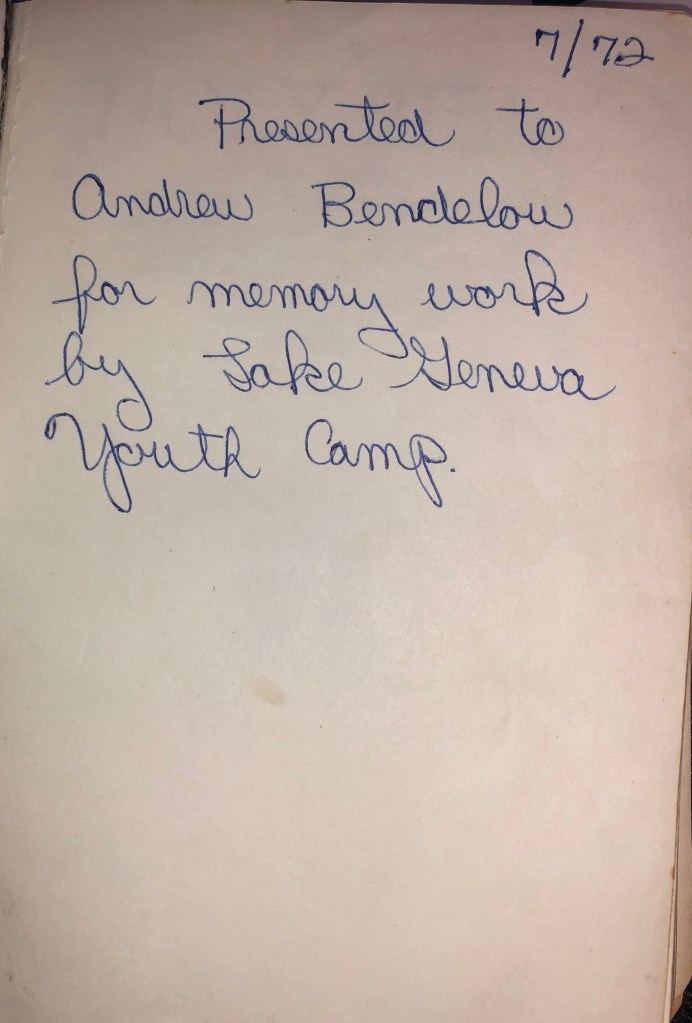 7/72
Presented to
Andrew Bendelow
for memory work
by Lake Geneva
Youth Camp.